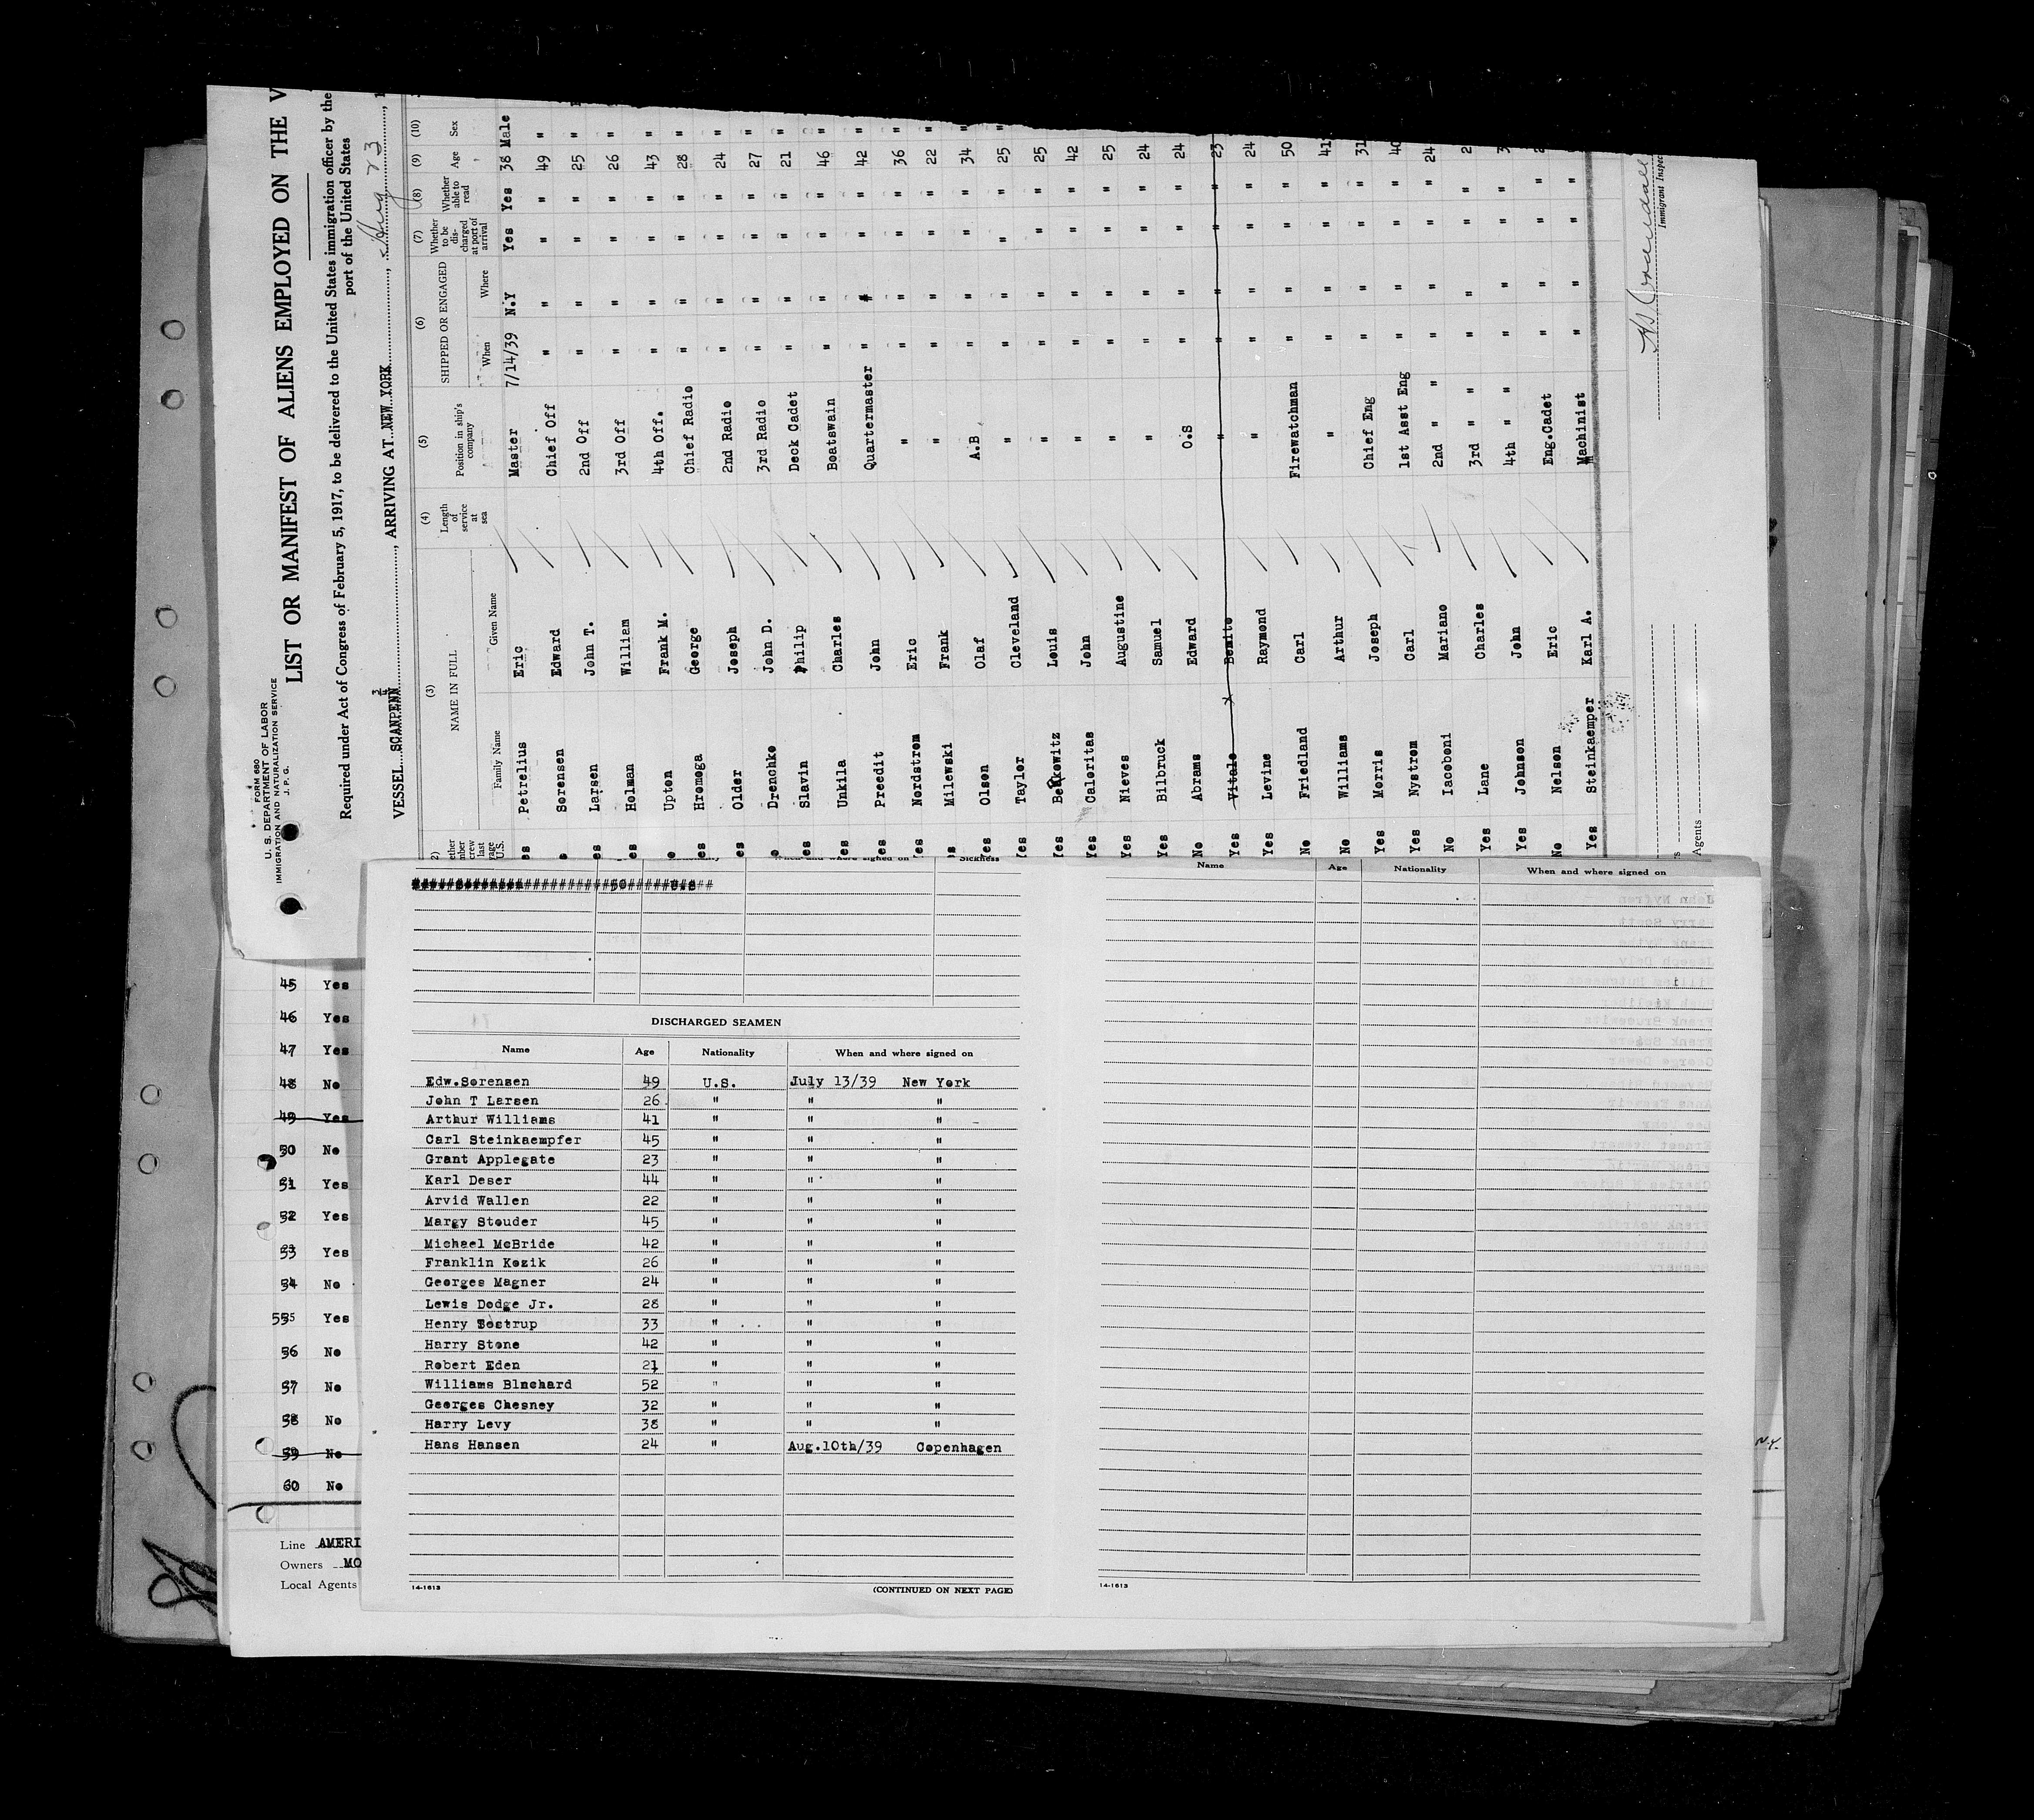 FORM 680
U. S. DEPARTMENT OF LABOR
IMMIGRATION AND NATURALIZATION SERVICE
J. P. G.
LIST OR MANIFEST OF ALIENS EMPLOYED ON THE V
Required under Act of Congress of February 5, 1917, to be delivered to the United States immigration officer by the
port of the United States
VESSEL SCANPENN, ARRIVING AT NEW YORK, Aug 23
(3) (4) (5) (6) (7) (8) (9) (10)
NAME IN FULL Length of service at sea Position in ship's company SHIPPED OR ENGAGED Whether to be discharged at port of arrival Whether able to read Age Sex
Family Name Given Name When Where
Petrelius Eric Master 7/14/39 N.Y Yes Yes 38 Male
Sorensen Edward Chief Off " " " " 49 "
Larsen John T. 2nd Off " " " " 25 "
Holman William 3rd Off " " " " 26 "
Upton Frank M. 4th Off. " " " " 43 "
Hromoga George Chief Radio " " " " 28 "
Older Joseph 2nd Radio " " " " 24 "
Drenchko John D. 3rd Radio " " " " 27 "
Slavin Philip Deck Cadet " " " " 21 "
Unkila Charles Boatswain " " " " 46 "
Preedit John Quartermaster " " " " 42 "
Nordstrom Eric " " " " " 36 "
Milewski Frank " " " " " 22 "
Olson Olaf A.B " " " " 34 "
Taylor Cleveland " " " " " 25 "
Yes Louis " " " " " 25
Yes Caloritas John " " " " " 42
Yes Nieves Augustine " " " " " 25
Yes Bilbruck Samuel " " " " " 24
No Abrams Edward O.S " " " " 24
Yes Vitale Benito " " " " " 23
Yes Levine Raymond " " " " " 24
No Friedland Carl Firewatchman " " " " 50
No Williams Arthur " " " " " 41
Yes Morris Joseph Chief Eng " " " " 31
Yes Nystrom Carl 1st Asst Eng " " " " 40
No Iacoboni Mariano 2nd " " " " " " 24
Yes Lane Charles 3rd " " " " " "
Yes Johnson John 4th " " " " " "
No Nelson Eric Eng.Cadet " " " "
Yes Steinkaemper Karl A. Machinist " " " "
Immigrant Inspec
Agents
45 Yes
46 Yes
47 Yes
48 No
49 Yes
50 No
51 Yes
52 Yes
53 Yes
54 No
55 Yes
56 No
57 No
58 No
59 No
60 No
Line AMERI
Owners MO
Local Agents
When and where signed on Sickness
DISCHARGED SEAMEN
Name Age Nationality When and where signed on
Edw.Sorensen 49 U.S. July 13/39 New York
John T Larsen 26 " " "
Arthur Williams 41 " " "
Carl Steinkaempfer 45 " " "
Grant Applegate 23 " " "
Karl Deser 44 " " "
Arvid Wallen 22 " " "
Margy Stouder 45 " " "
Michael McBride 42 " " "
Franklin Kozik 26 " " "
Georges Magner 24 " " "
Lewis Dodge Jr. 28 " " "
Henry Sostrup 33 " " "
Harry Stone 42 " " "
Robert Eden 21 " " "
Williams Blnchard 52 " " "
Georges Chesney 32 " " "
Harry Levy 38 " " "
Hans Hansen 24 " Aug.10th/39 Copenhagen
14-1613 (CONTINUED ON NEXT PAGE)
Name Age Nationality When and where signed on
14-1613
N.Y.